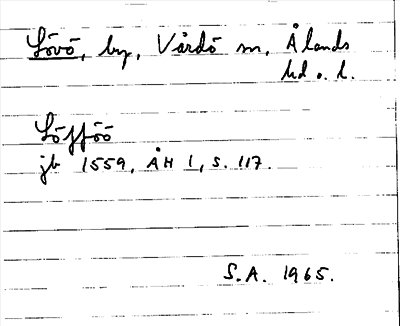 Lövö, by, Vårdö sn, Ålands
hd o. l.
Löfföö
jb 1559, ÅH 1, s. 117.
S.A. 1965.